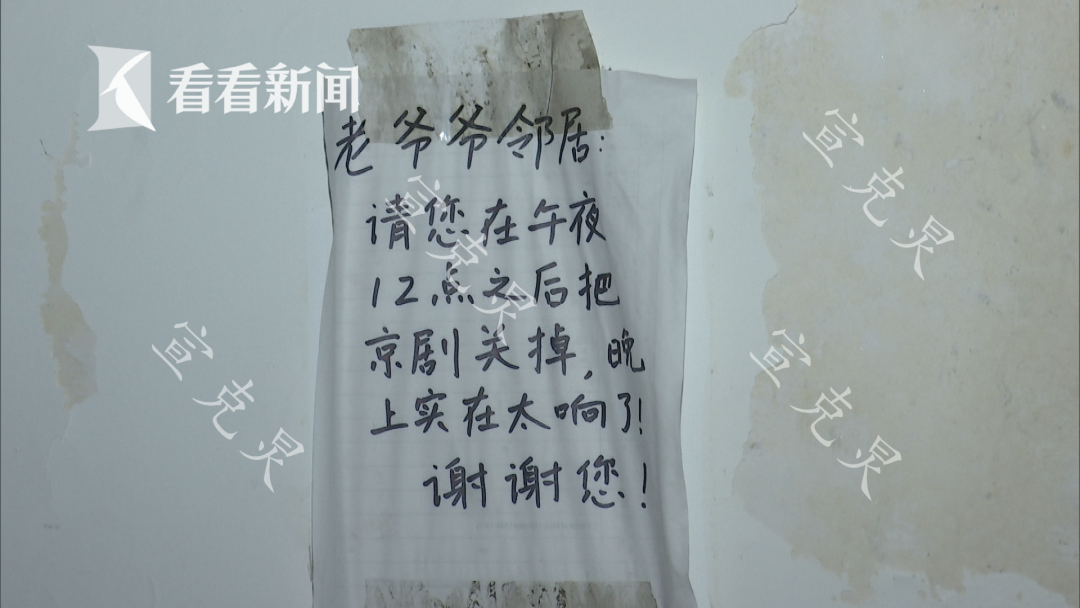 看看新闻
老爷爷邻居:
请您在午夜
12点之后把
京剧关掉,晚
上实在太响了!
谢谢您!
宣克炅
宣克炅
宣克炅
宣克炅